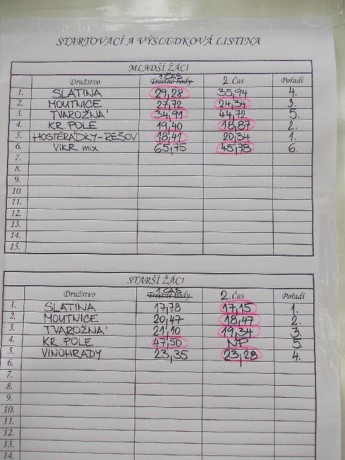 STARTOVACÍ A VÝSLEDKOVÁ LISTINA
MLADŠÍ ŽÁCI
Družstvo 1. ČAS Trestné body 2. Čas Pořadí
1. SLATINA 29,28 35,94 4.
2. MOUTNICE 27,72 24,34 3.
3. TVAROŽNÁ 34,91 44,72 5.
4. KR POLE 19,40 18,87 2.
5. HOSTĚRÁDKY-REŠOV 18,41 20,34 1.
6. VIKR mix 65,75 45,78 6.
7.
8.
9.
10.
11.
12.
13.
14.
15.
STARŠÍ ŽÁCI
Družstvo 1. ČAS Trestné body 2. Čas Pořadí
1. SLATINA 17,78 17,15 1.
2. MOUTNICE 20,47 18,47 2.
3. TVAROŽNÁ 21,10 19,34 3.
4. KR POLE 47,50 NP 5
5. VINOHRADY 23,35 23,28 4.
6.
7.
8.
9.
10.
11.
12.
13.
14.